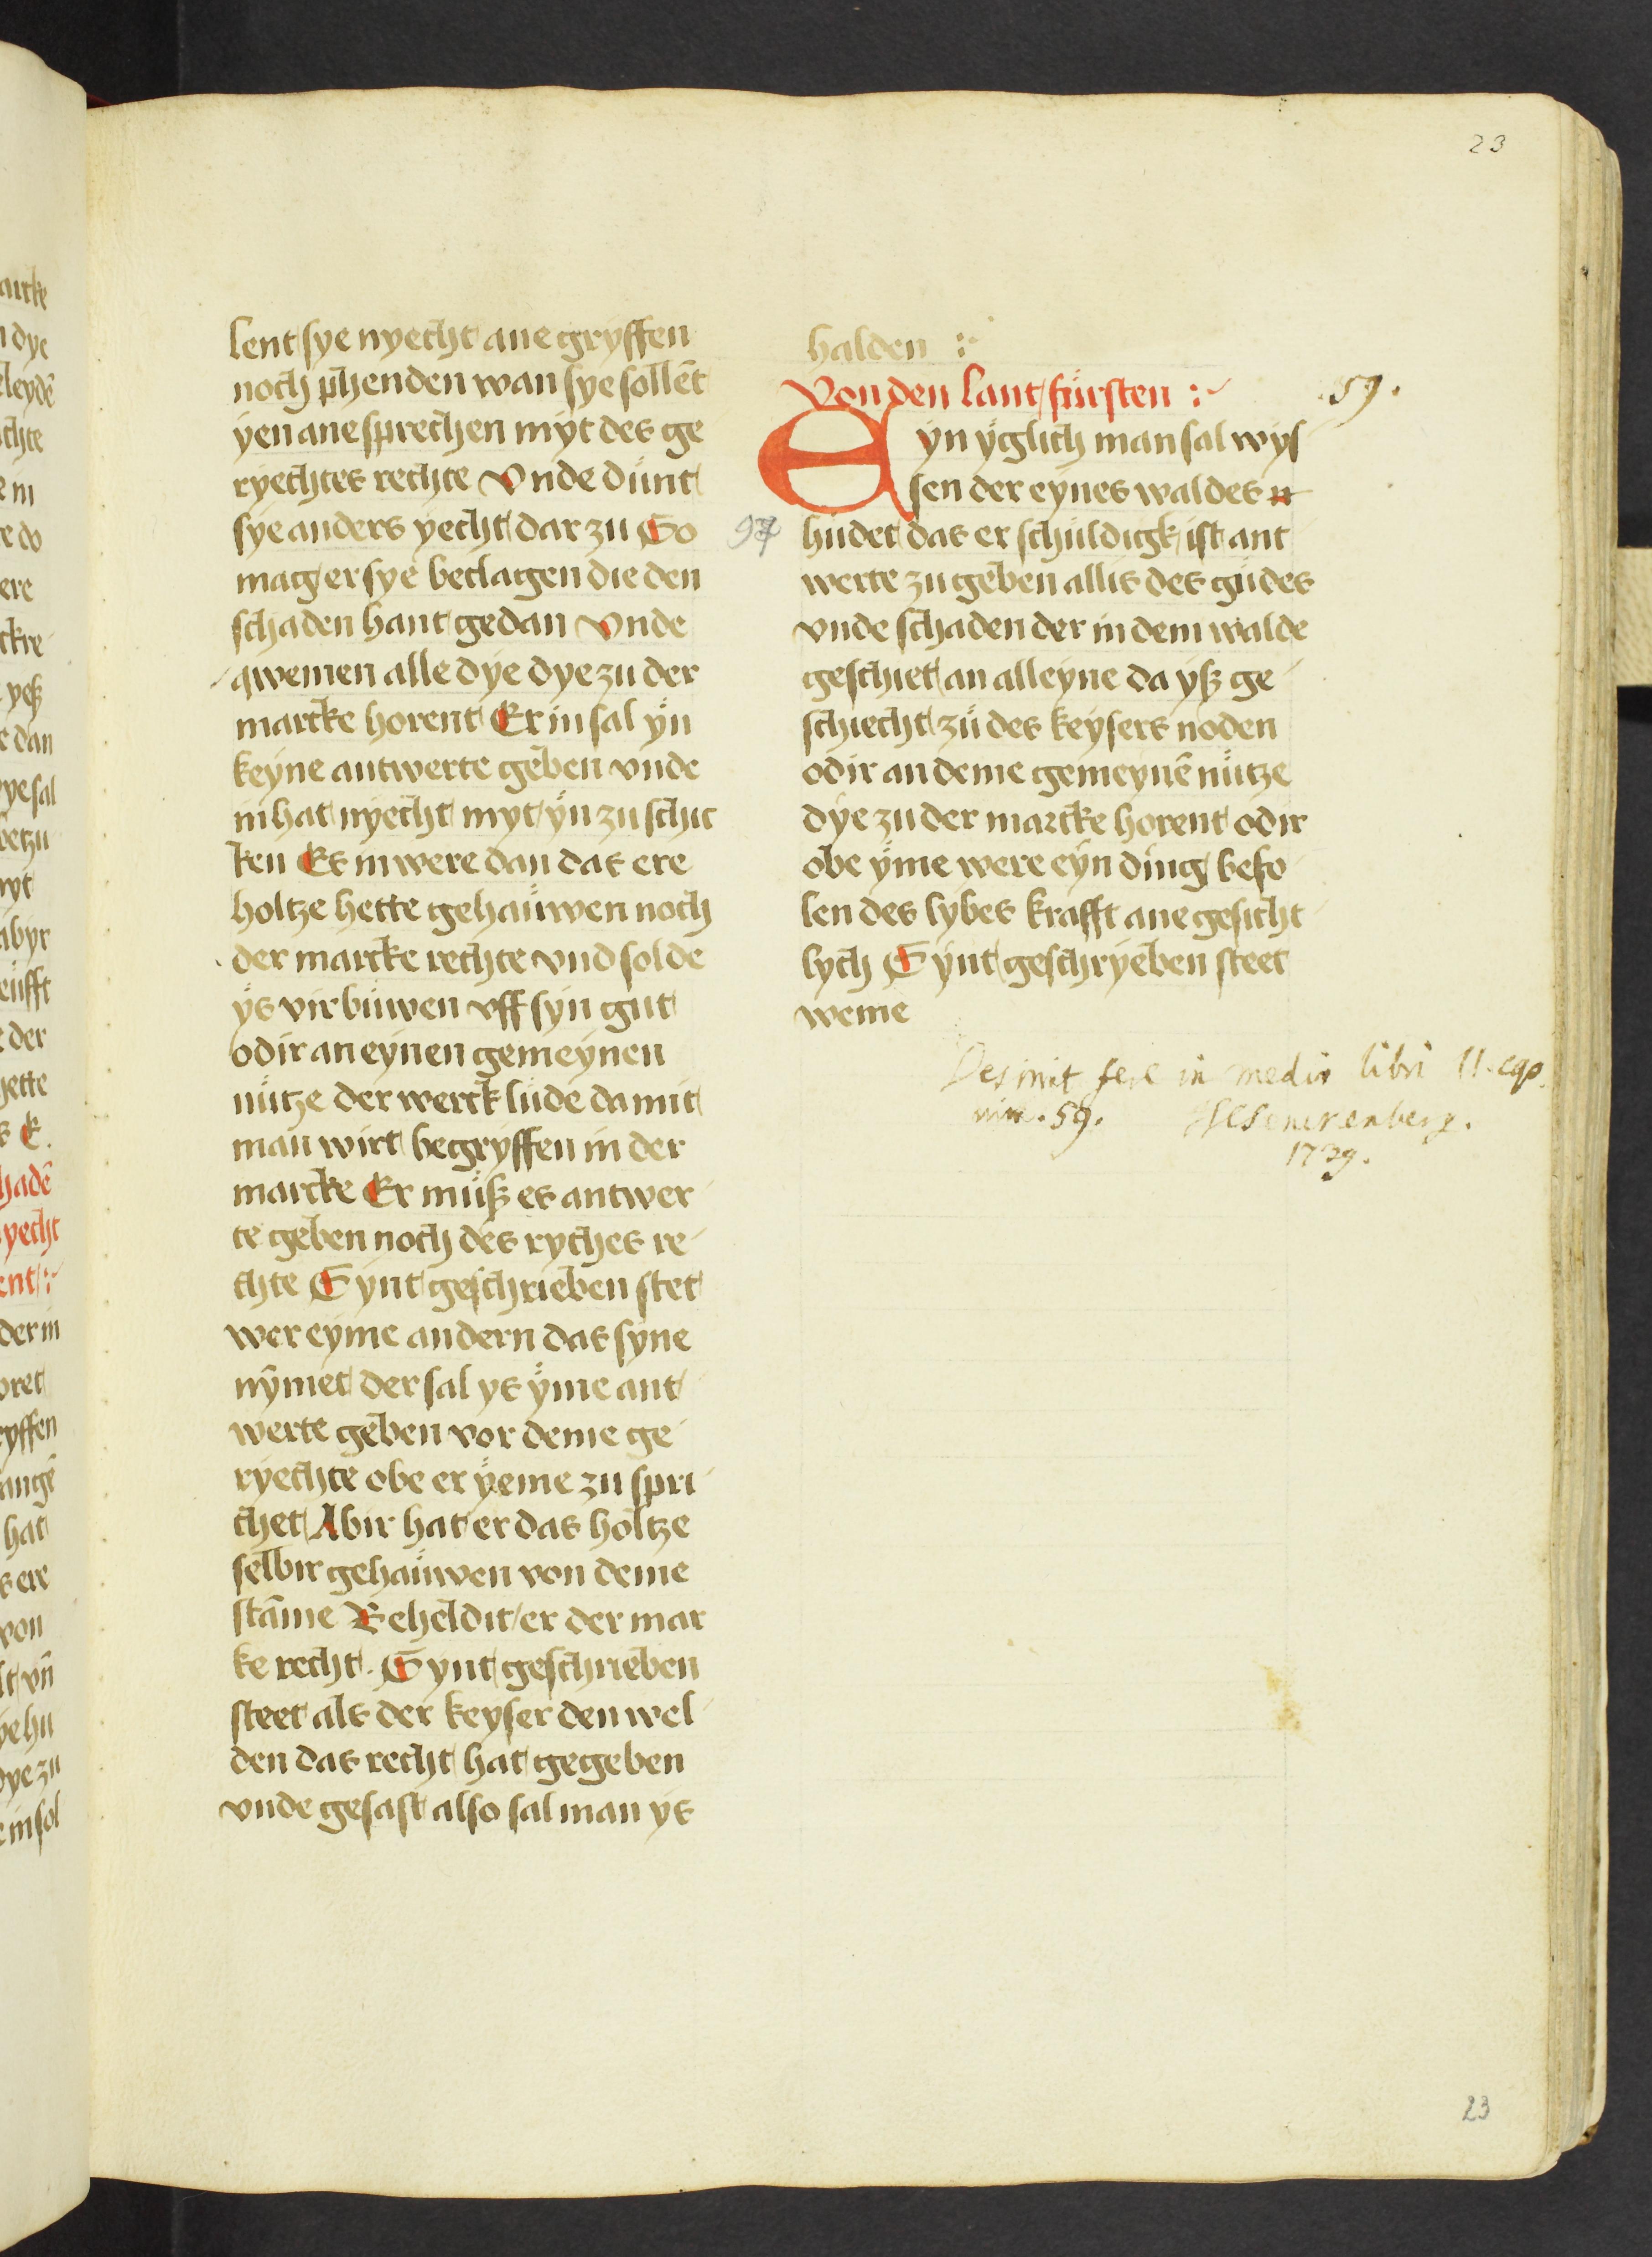 23
lent sye nyecht ane gryffen
noch phenden wan sye sollēt
yen ane sprechen myt des ge
ryechtes rechte Vnde dünt
sye anders yecht dar zu So
mag er sye beclagen die den
schaden hant gedan Vnde
qwemen alle dye dye zu der
marcke horent Er in sal yn
keyne antwerte geben vnde
in hat nyecht myt yn zu schic
ken Es in were dan das ere
holtze hette gehaüwen noch
der marcke rechte vnd solde
ys virbüwen vff syn gut
odir an eynen gemeynen
nütze der werck lüde da mit
man wirt begryffen in der
marcke Er müß es antwer
te geben noch des ryches re
chte Synt geschrieben stet
wer eyme andern das syne
nymet der sal ys yme ant
werte geben vor deme ge
ryechte obe er yeme zu spri
chet Abir hat er das holtze
selbir gehaüwen von deme
stāme Beheldit er der mar
ke recht. Synt geschrieben
steet als der keyser den wel
den das recht hat gegeben
vnde gesast also sal man ys
halden :
Von den lant fürsten :~
59.
Eyn yglich man sal wys
sen der eynes waldes
97
hüdet das er schuldigk ist ant
werte zu geben allis des gudes
vnde schaden der in dem walde
geschiet an alleyne da yß ge
schiecht zü des keysers noden
odir an deme gemeynē nütze
dye zu der marcke horent odir
obe yme were eyn ding befo
len des lybes krafft ane gesicht
lych Synt geschryeben steet
weme
Desinit fere in medio libri II. cap.
nim. 59. HCSenckenberg.
1739.
23